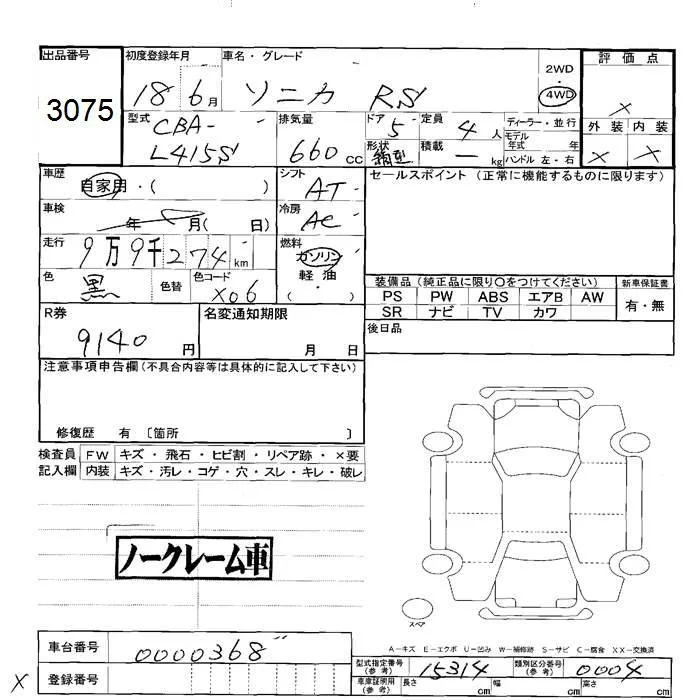 出品番号 初度登録年月 車名・グレード 評価点
3075 18 6月 ソニカ RS 2WD・4WD ×
型式 CBA-L415S 排気量 660cc ドア 5 定員 4人 ディーラー・並行 外装 内装
形状 箱型 積載 ー kg モデル年式 年式 ハンドル 左・右 × ×
車歴 自家用・( ) シフト AT セールスポイント (正常に機能するものに限ります)
車検 年 月( 日) 冷房 AC
走行 9万9千274km 燃料 ガソリン 軽油 ( ・ )
色 黒 色替 色コード X06 装備品 (純正品に限り○をつけてください) 新車保証書
PS PW ABS エアB AW 有・無
R券 名変通知期限 SR ナビ TV カワ
9140円 月 日 後日品
注意事項申告欄 (不具合内容等は具体的に記入して下さい)
修復歴 有 〔箇所 〕
検査員 FW キズ・飛石・ヒビ割・リペア跡・×要
記入欄 内装 キズ・汚レ・コゲ・穴・スレ・キレ・破レ
ノークレーム車
スペア
A-キズ E-エクボ U-凹み W-補修跡 S-サビ C-腐食 XX-交換済
車台番号 0000368
型式指定番号 (参考) 15314 類別区分番号 (参考) 0004
× 登録番号 車庫証明用 (参考) 長さ cm 幅 cm 高さ cm